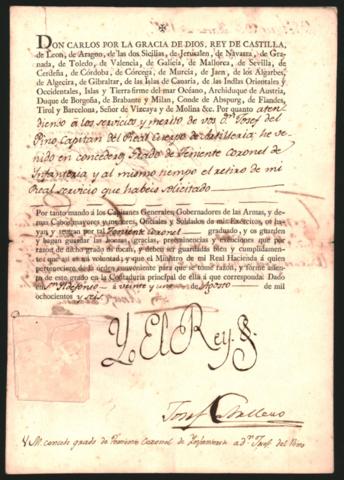 DON CARLOS POR LA GRACIA DE DIOS, REY DE CASTILLA,
de Leon, de Aragon, de las dos Sicilias, de Jerusalen, de Navarra, de Gra-
nada, de Toledo, de Valencia, de Galicia, de Mallorca, de Sevilla, de
Cerdeña, de Córdoba, de Córcega, de Murcia, de Jaen, de los Algarbes,
de Algecira, de Gibraltar, de las Islas de Canaria, de las Indias Orientales y
Occidentales, Islas y Tierra firme del mar Océano, Archiduque de Austria,
Duque de Borgoña, de Brabante y Milan, Conde de Abspurg, de Flandes,
Tirol y Barcelona, Señor de Vizcaya y de Molina &c. Por quanto aten-
diendo à los servicios y merito de vos Dn. Josef del
Pino, Capitan del Real Cuerpo de Artilleria; he ve-
nido en concederos Grado de Teniente Coronel de
Infanteria y al mismo tiempo el retiro de mi
Real servicio que habeis solicitado
Por tanto mando á los Capitanes Generales, Gobernadores de las Armas, y de-
mas Cabos mayores y menores, Oficiales y Soldados de mis Exércitos, os ha-
yan y tengan por tal Teniente Coronel graduado, y os guarden
y hagan guardar las honras, gracias, preeminencias y exênciones que por
razon de dicho grado os tocan, y deben ser guardadas bien y cumplidamen-
te: que así es mi voluntad; y que el Ministro de mi Real Hacienda á quien
perteneciere dé la orden conveniente para que se tome razon, y forme asien-
to de este grado en la Contaduría principal
Dado
en Sn. Ildefonso á veinte y uno de Agosto de mil
ochocientos y seis
Yo El Rey
Josef Caballero
V.M. concede grado de Teniente Coronel de Infanteria a Dn. Josef del Pino